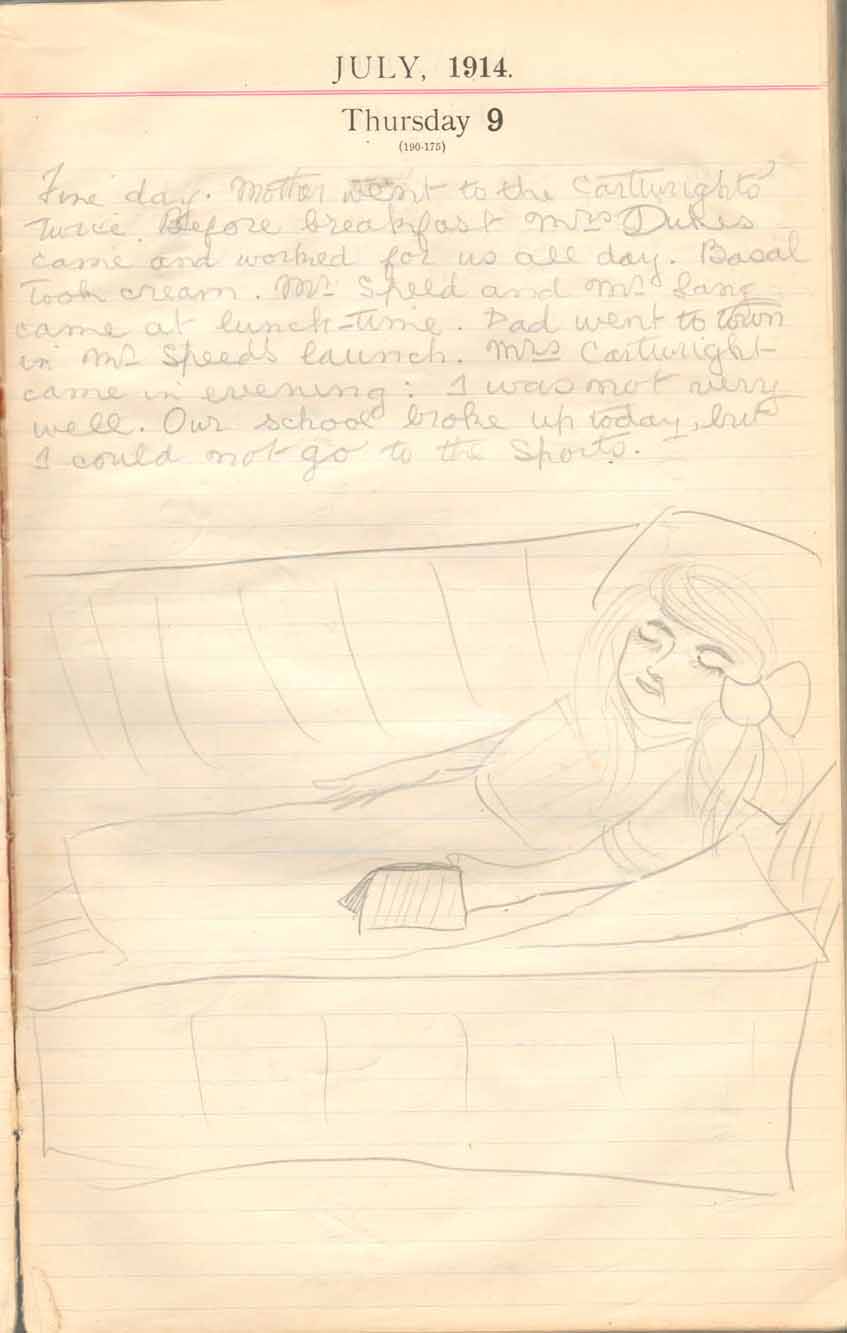 JULY, 1914.
Thursday 9
(190-175)
Fine day. Mother went to the Cartwrights'
twice. Before breakfast Mrs Dukes
came and worked for us all day. Basal
took cream. Mr Speed and Mr Lang
came at lunch-time. Dad went to town
in Mr Speed's launch. Mrs Cartwright
came in evening: I was not very
well. Our school broke up today, but
I could not go to the Sports.